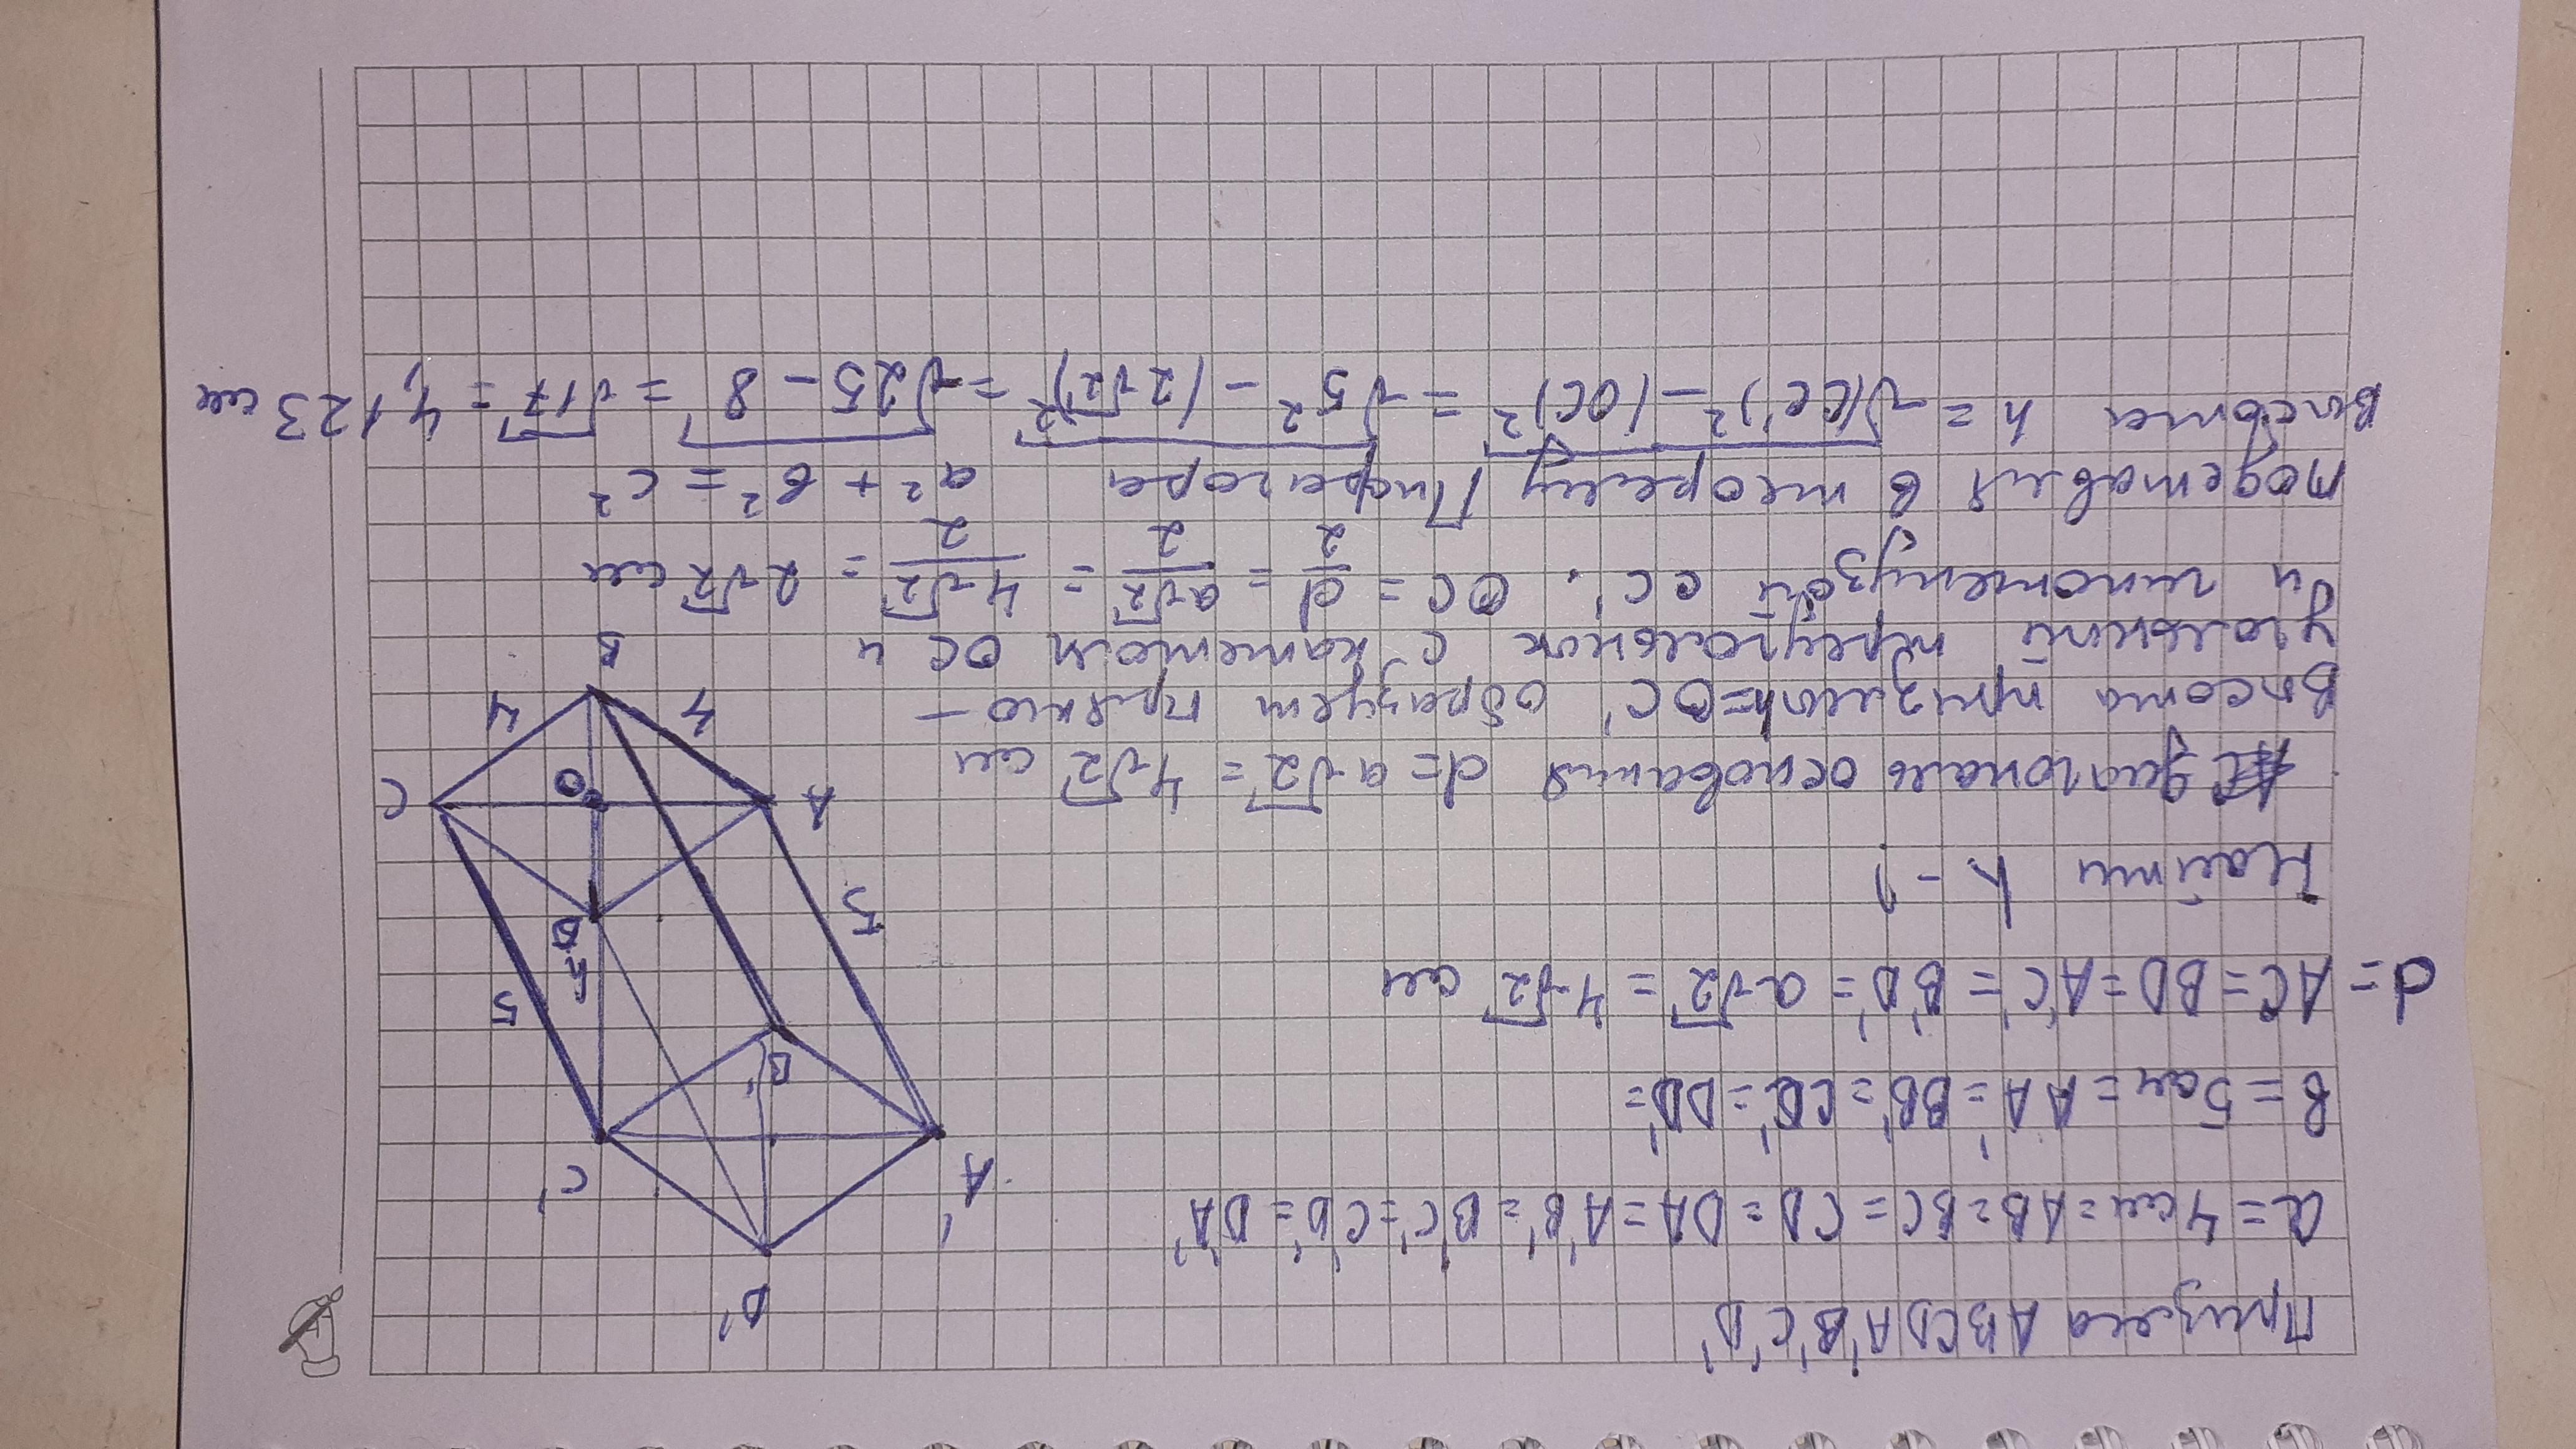 Призма ABCDA'B'C'D'
a = 4 см = AB = BC = CD = DA = A'B' = B'C' = C'D' = D'A'
в = 5 см = AA' = BB' = CC' = DD' =
d = AC = BD = A'C' = B'D' = a√2 = 4√2 см
Найти h - ?
диагональ основания d = a√2 = 4√2 см
Высота призмы h = OC' образует прямо -
угольный треугольник с катетом OC и
и гипотенузой CC'. OC = d/2 = a√2/2 = 4√2/2 = 2√2 см
подставляя в теорему Пифагора a² + в² = c²
Высота h = √(CC')² - (OC)² = √5² - (2√2)² = √25 - 8 = √17 = 4,123 см
D'
A'
C'
B'
5
5
h
D
A
O
C
4
4
B